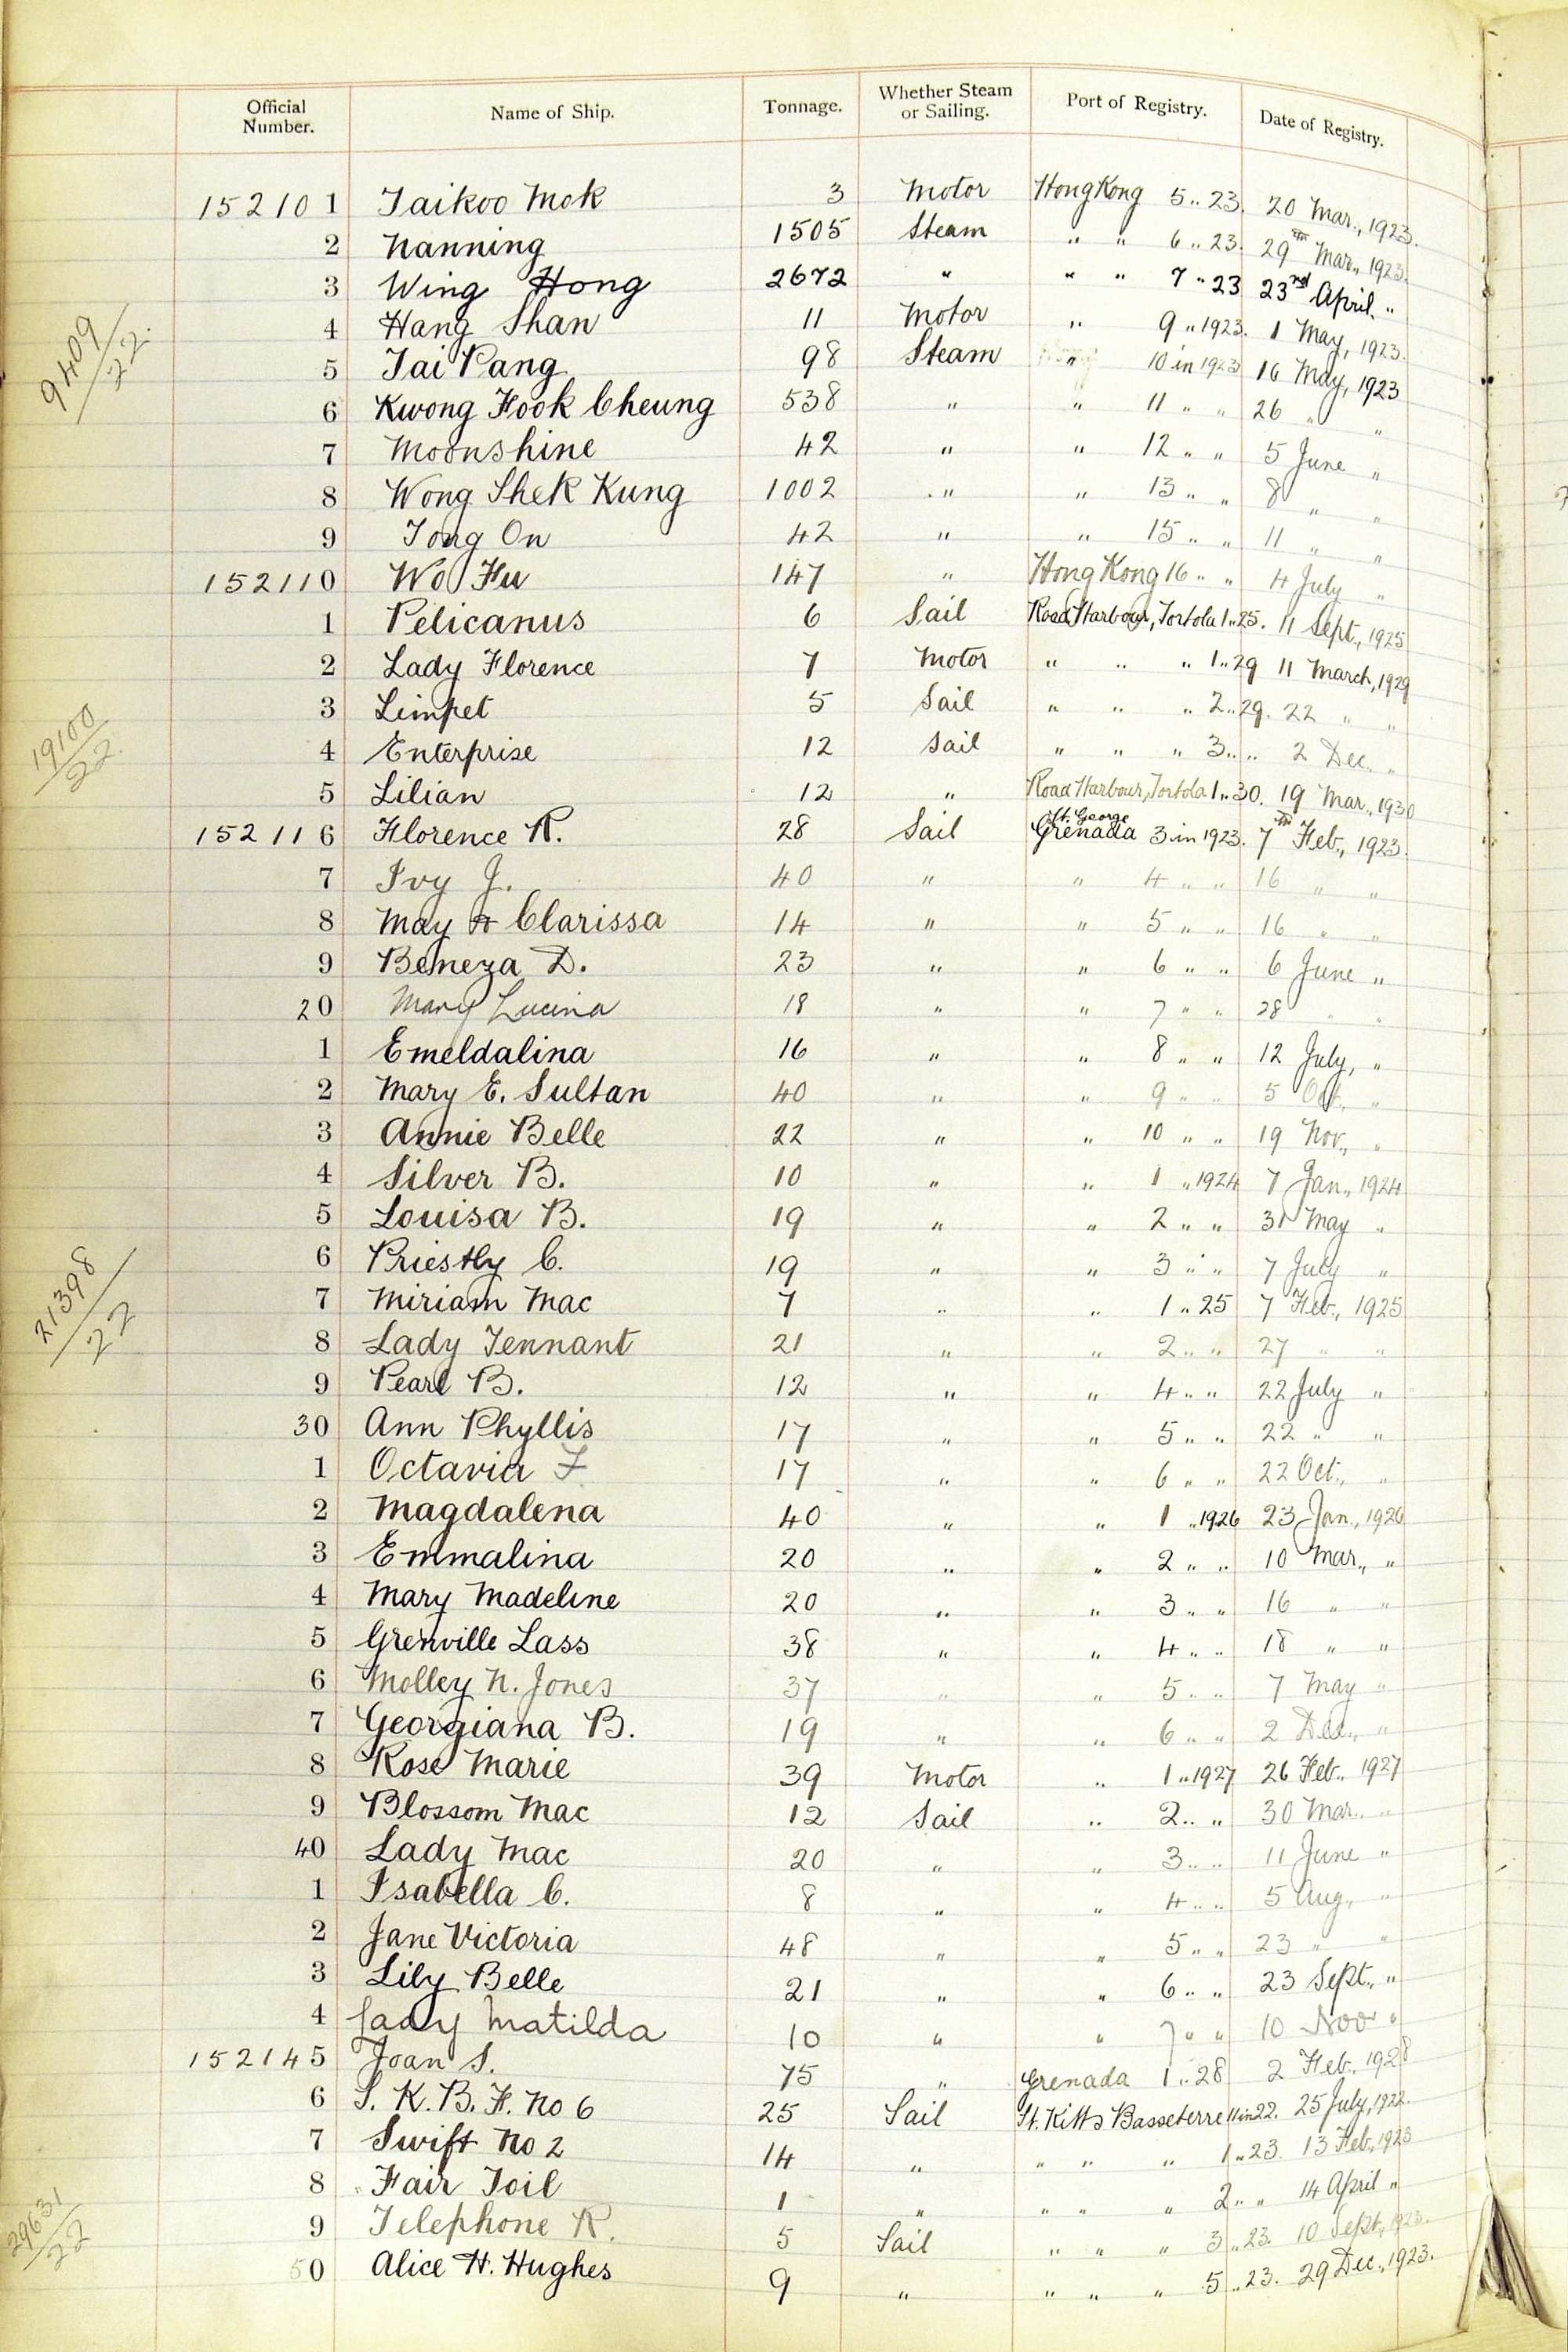 Official Number. Name of Ship. Tonnage. Whether Steam or Sailing. Port of Registry. Date of Registry.
152101 Taikoo Mok 3 Motor Hong Kong 5 " 23. 20 Mar., 1923.
2 Nanning 1505 Steam " " 6 " 23. 29th Mar., 1923.
3 Wing Hong 2672 " " " 7 " 23 23rd April "
4 Hang Shan 11 Motor " 9 " 1923. 1 May, 1923.
9409/22.
5 Tai Pang 98 Steam " 10 in 1923 16 May, 1923
6 Kwong Fook Cheung 538 " " 11 " " 26 " "
7 Moonshine 42 " " 12 " " 5 June "
8 Wong Shek Kung 1002 " " 13 " " 8 " "
9 Tong On 42 " " 15 " " 11 " "
152110 Wo Fu 147 " Hong Kong 16 " " 4 July "
1 Pelicanus 6 Sail Road Harbour, Tortola 1 " 25. 11 Sept., 1925
2 Lady Florence 7 Motor " " " 1 " 29 11 March, 1929
3 Limpet 5 Sail " " " 2 " 29. 22 " "
19100/22.
4 Enterprise 12 Sail " " " 3 " " 2 Dec. "
5 Lilian 12 " Road Harbour, Tortola 1 " 30. 19 Mar., 1930
152116 Florence R. 28 Sail St. George Grenada 3 in 1923. 7th Feb., 1923.
7 Ivy J. 40 " " 4 " " 16 " "
8 May & Clarissa 14 " " 5 " " 16 " "
9 Beneza D. 23 " " 6 " " 6 June "
20 Mary Lucina 18 " " 7 " " 28 " "
1 Emeldalina 16 " " 8 " " 12 July, "
2 Mary E. Sultan 40 " " 9 " " 5 Oct., "
3 Annie Belle 22 " " 10 " " 19 Nov., "
4 Silver B. 10 " " 1 " 1924 7 Jan., 1924
5 Louisa B. 19 " " 2 " " 31 May "
6 Priestly C. 19 " " 3 " " 7 July "
21398/22
7 Miriam Mac 7 " " 1 " 25 7 Feb., 1925
8 Lady Tennant 21 " " 2 " " 27 " "
9 Pearl B. 12 " " 4 " " 22 July "
30 Ann Phyllis 17 " " 5 " " 22 " "
1 Octavia F 17 " " 6 " " 22 Oct., "
2 Magdalena 40 " " 1 " 1926 23 Jan., 1926
3 Emmalina 20 " " 2 " " 10 Mar., "
4 Mary Madeline 20 " " 3 " " 16 " "
5 Grenville Lass 38 " " 4 " " 18 " "
6 Molley N. Jones 37 " " 5 " " 7 May "
7 Georgiana B. 19 " " 6 " " 2 Dec., "
8 Rose Marie 39 Motor " 1 " 1927 26 Feb., 1927
9 Blossom Mac 12 Sail " 2 " " 30 Mar. "
40 Lady Mac 20 " " 3 " " 11 June "
1 Isabella C. 8 " " 4 " " 5 Aug., "
2 Jane Victoria 48 " " 5 " " 23 " "
3 Lily Belle 21 " " 6 " " 23 Sept., "
4 Lady Matilda 10 " " 7 " " 10 Nov "
152145 Joan S. 75 " Grenada 1 " 28 2 Feb., 1928
6 S. K. B. F. No 6 25 Sail St. Kitts Basseterre 11 in 22. 25 July, 1922.
7 Swift No 2 14 " " " " 1 " 23. 13 Feb., 1923
8 Fair Toil 1 " " " " 2 " " 14 April "
29631/22
9 Telephone R. 5 Sail " " " 3 " 23. 10 Sept., 1923.
50 Alice H. Hughes 9 " " " " 5 " 23. 29 Dec., 1923.